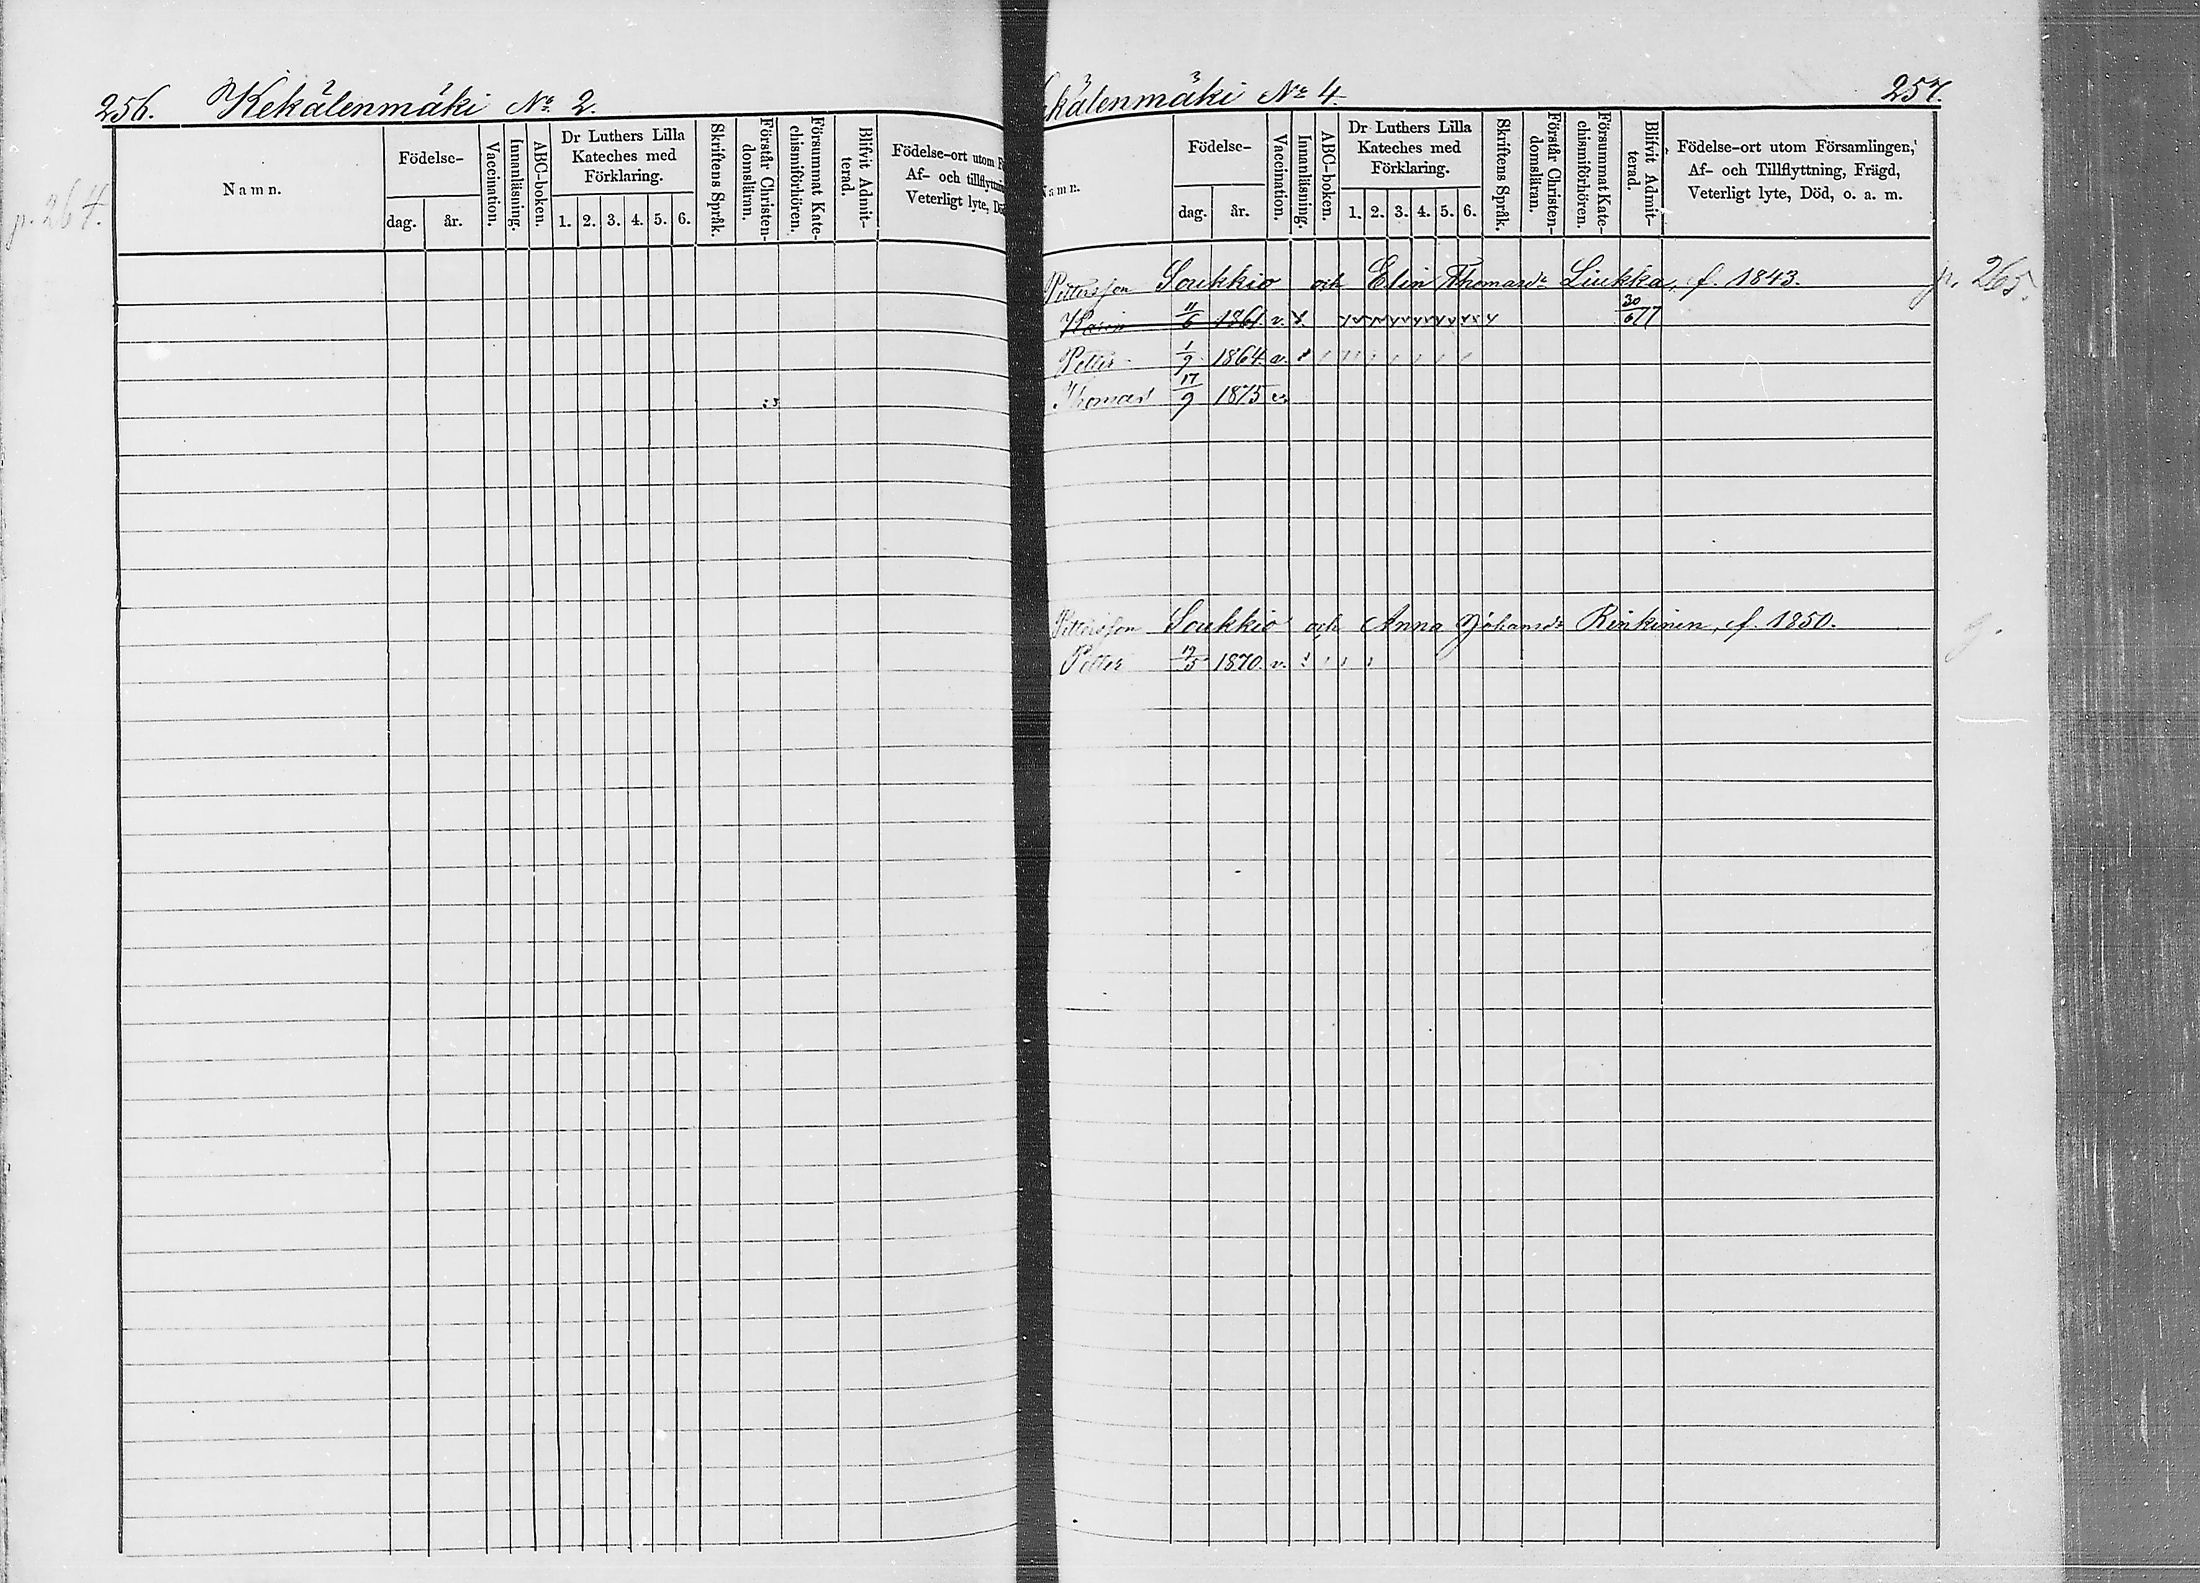 256. Kekälenmäki No 2.
p. 264.
Namn.
Födelse-
dag.
år.
Vaccination.
Innanläsning.
ABC-boken.
Dr Luthers Lilla
Kateches med
Förklaring.
1. 2. 3. 4. 5. 6.
Skriftens Språk.
Förstår Christen-
domsläran.
Försummat Kate-
chismiförhören.
Blifvit Admit-
terad.
Födelse-ort utom F
Af- och tillflyttnin
Veterligt lyte, Dö
kälenmäki No 4. 257.
amn.
Födelse-
dag.
år.
Vaccination.
Innanläsning.
ABC-boken.
Dr Luthers Lilla
Kateches med
Förklaring.
1. 2. 3. 4. 5. 6.
Skriftens Språk.
Förstår Christen-
domsläran.
Försummat Kate-
chismiförhören.
Blifvit Admit-
terad.
Födelse-ort utom Församlingen,
Af- och Tillflyttning, Frägd,
Veterligt lyte, Död, o. a. m.
Pettersson Soukkio och Elin Thomasdr Liukka, f. 1843. p. 265.
Karin 11/6 1861. v. 30/6 77
Petter 1/9 1864. v.
Thomas 17/9 1875 v.
Pettersson Soukkio och Anna Johansdr Rinkinen, f. 1850.
Petter 19/5 1870. v.